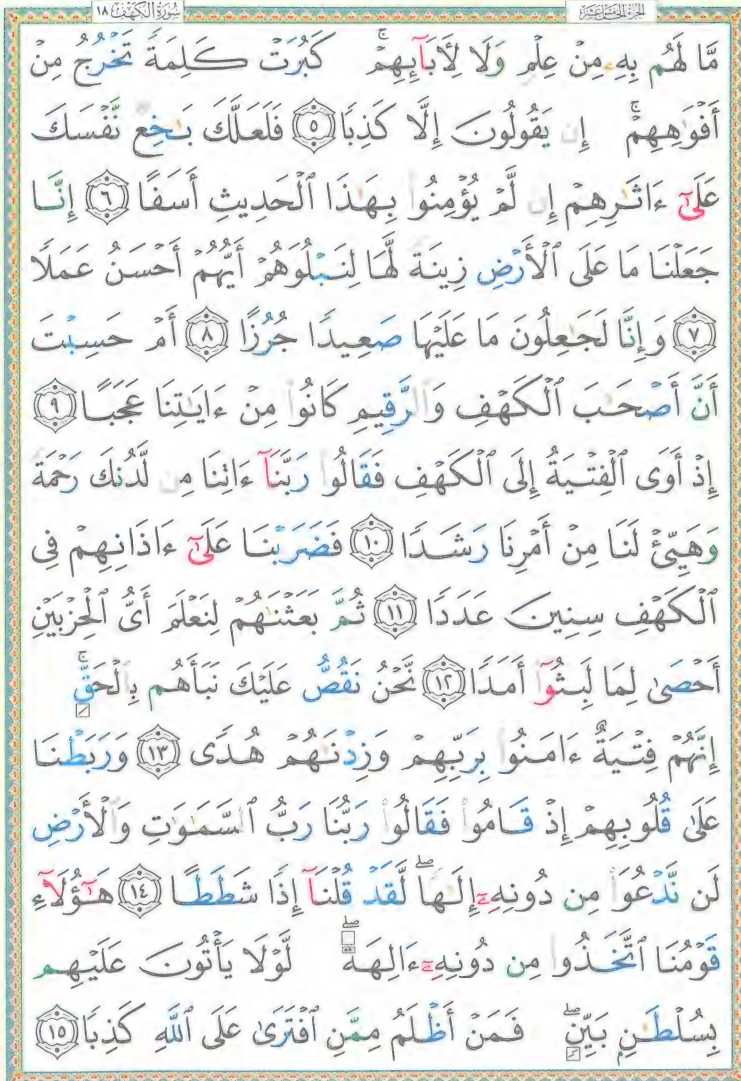 سُورَةُ الْكَهْفِ ١٨
الجزء الخامس عشر
مَّا لَهُم بِهِۦ مِنْ عِلْمٍ وَلَا لِأٓبَآئِهِمْ ۚ كَبُرَتْ كَلِمَةً تَخْرُجُ مِنْ
أَفْوَٰهِهِمْ ۚ إِن يَقُولُونَ إِلَّا كَذِبًا ﴿٥﴾ فَلَعَلَّكَ بَـٰخِعٌ نَّفْسَكَ
عَلَىٰٓ ءَاثَـٰرِهِمْ إِن لَّمْ يُؤْمِنُوا۟ بِهَـٰذَا ٱلْحَدِيثِ أَسَفًا ﴿٦﴾ إِنَّا
جَعَلْنَا مَا عَلَى ٱلْأَرْضِ زِينَةً لَّهَا لِنَبْلُوَهُمْ أَيُّهُمْ أَحْسَنُ عَمَلًا
﴿٧﴾ وَإِنَّا لَجَـٰعِلُونَ مَا عَلَيْهَا صَعِيدًا جُرُزًا ﴿٨﴾ أَمْ حَسِبْتَ
أَنَّ أَصْحَـٰبَ ٱلْكَهْفِ وَٱلرَّقِيمِ كَانُوا۟ مِنْ ءَايَـٰتِنَا عَجَبًا ﴿٩﴾
إِذْ أَوَى ٱلْفِتْيَةُ إِلَى ٱلْكَهْفِ فَقَالُوا۟ رَبَّنَآ ءَاتِنَا مِن لَّدُنكَ رَحْمَةً
وَهَيِّئْ لَنَا مِنْ أَمْرِنَا رَشَدًا ﴿١٠﴾ فَضَرَبْنَا عَلَىٰٓ ءَاذَانِهِمْ فِى
ٱلْكَهْفِ سِنِينَ عَدَدًا ﴿١١﴾ ثُمَّ بَعَثْنَـٰهُمْ لِنَعْلَمَ أَىُّ ٱلْحِزْبَيْنِ
أَحْصَىٰ لِمَا لَبِثُوٓا۟ أَمَدًا ﴿١٢﴾ نَّحْنُ نَقُصُّ عَلَيْكَ نَبَأَهُم بِٱلْحَقِّ ۚ
إِنَّهُمْ فِتْيَةٌ ءَامَنُوا۟ بِرَبِّهِمْ وَزِدْنَـٰهُمْ هُدًى ﴿١٣﴾ وَرَبَطْنَا
عَلَىٰ قُلُوبِهِمْ إِذْ قَامُوا۟ فَقَالُوا۟ رَبُّنَا رَبُّ ٱلسَّمَـٰوَٰتِ وَٱلْأَرْضِ
لَن نَّدْعُوَا۟ مِن دُونِهِۦٓ إِلَـٰهًا ۖ لَّقَدْ قُلْنَآ إِذًا شَطَطًا ﴿١٤﴾ هَـٰٓؤُلَآءِ
قَوْمُنَا ٱتَّخَذُوا۟ مِن دُونِهِۦٓ ءَالِهَةً ۖ لَّوْلَا يَأْتُونَ عَلَيْهِم
بِسُلْطَـٰنٍۭ بَيِّنٍ ۖ فَمَنْ أَظْلَمُ مِمَّنِ ٱفْتَرَىٰ عَلَى ٱللَّهِ كَذِبًا ﴿١٥﴾